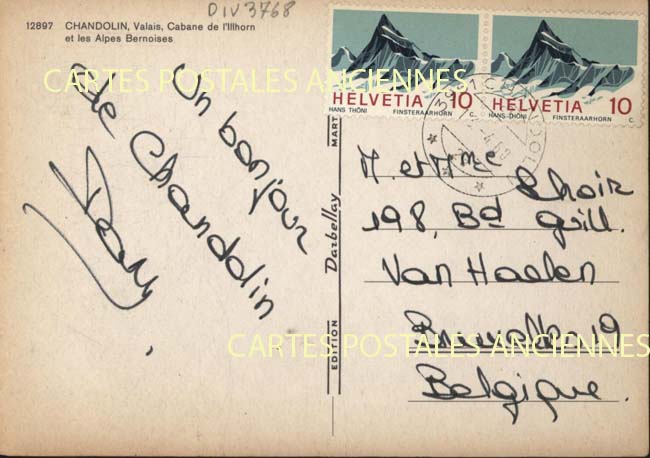 DIV3768
12897 CHANDOLIN, Valais, Cabane de l'Illhorn
et les Alpes Bernoises
CARTES POSTALES ANCIENNES
Un bonjour
de Chandolin
HELVETIA 10
HANS THÖNI FINSTERAARHORN C.
HELVETIA 10
HANS THÖNI FINSTERAARHORN C.
CHANDOLIN
EDITION Darbellay MART
M. et Mme Choix
198, Bd Guill.
Van Haelen
Bruxelles 19
Belgique.
CARTES POSTALES ANCIENNES